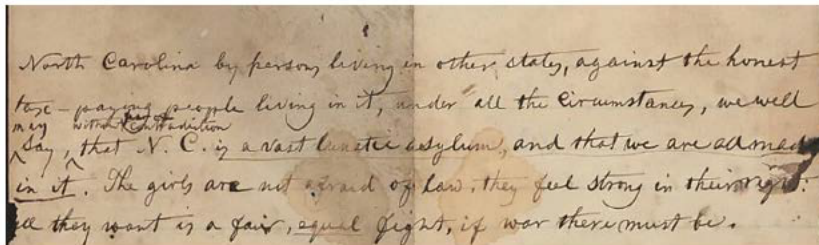 North Carolina by persons living in other states, against the honest
tax-paying people living in it, under all the Circumstances, we well
may without Contradiction
say, that N. C. is a vast lunatic asylum, and that we are all mad
in it. The girls are not afraid of law, they feel strong in their right:
all they want is a fair, equal fight, if war there must be.